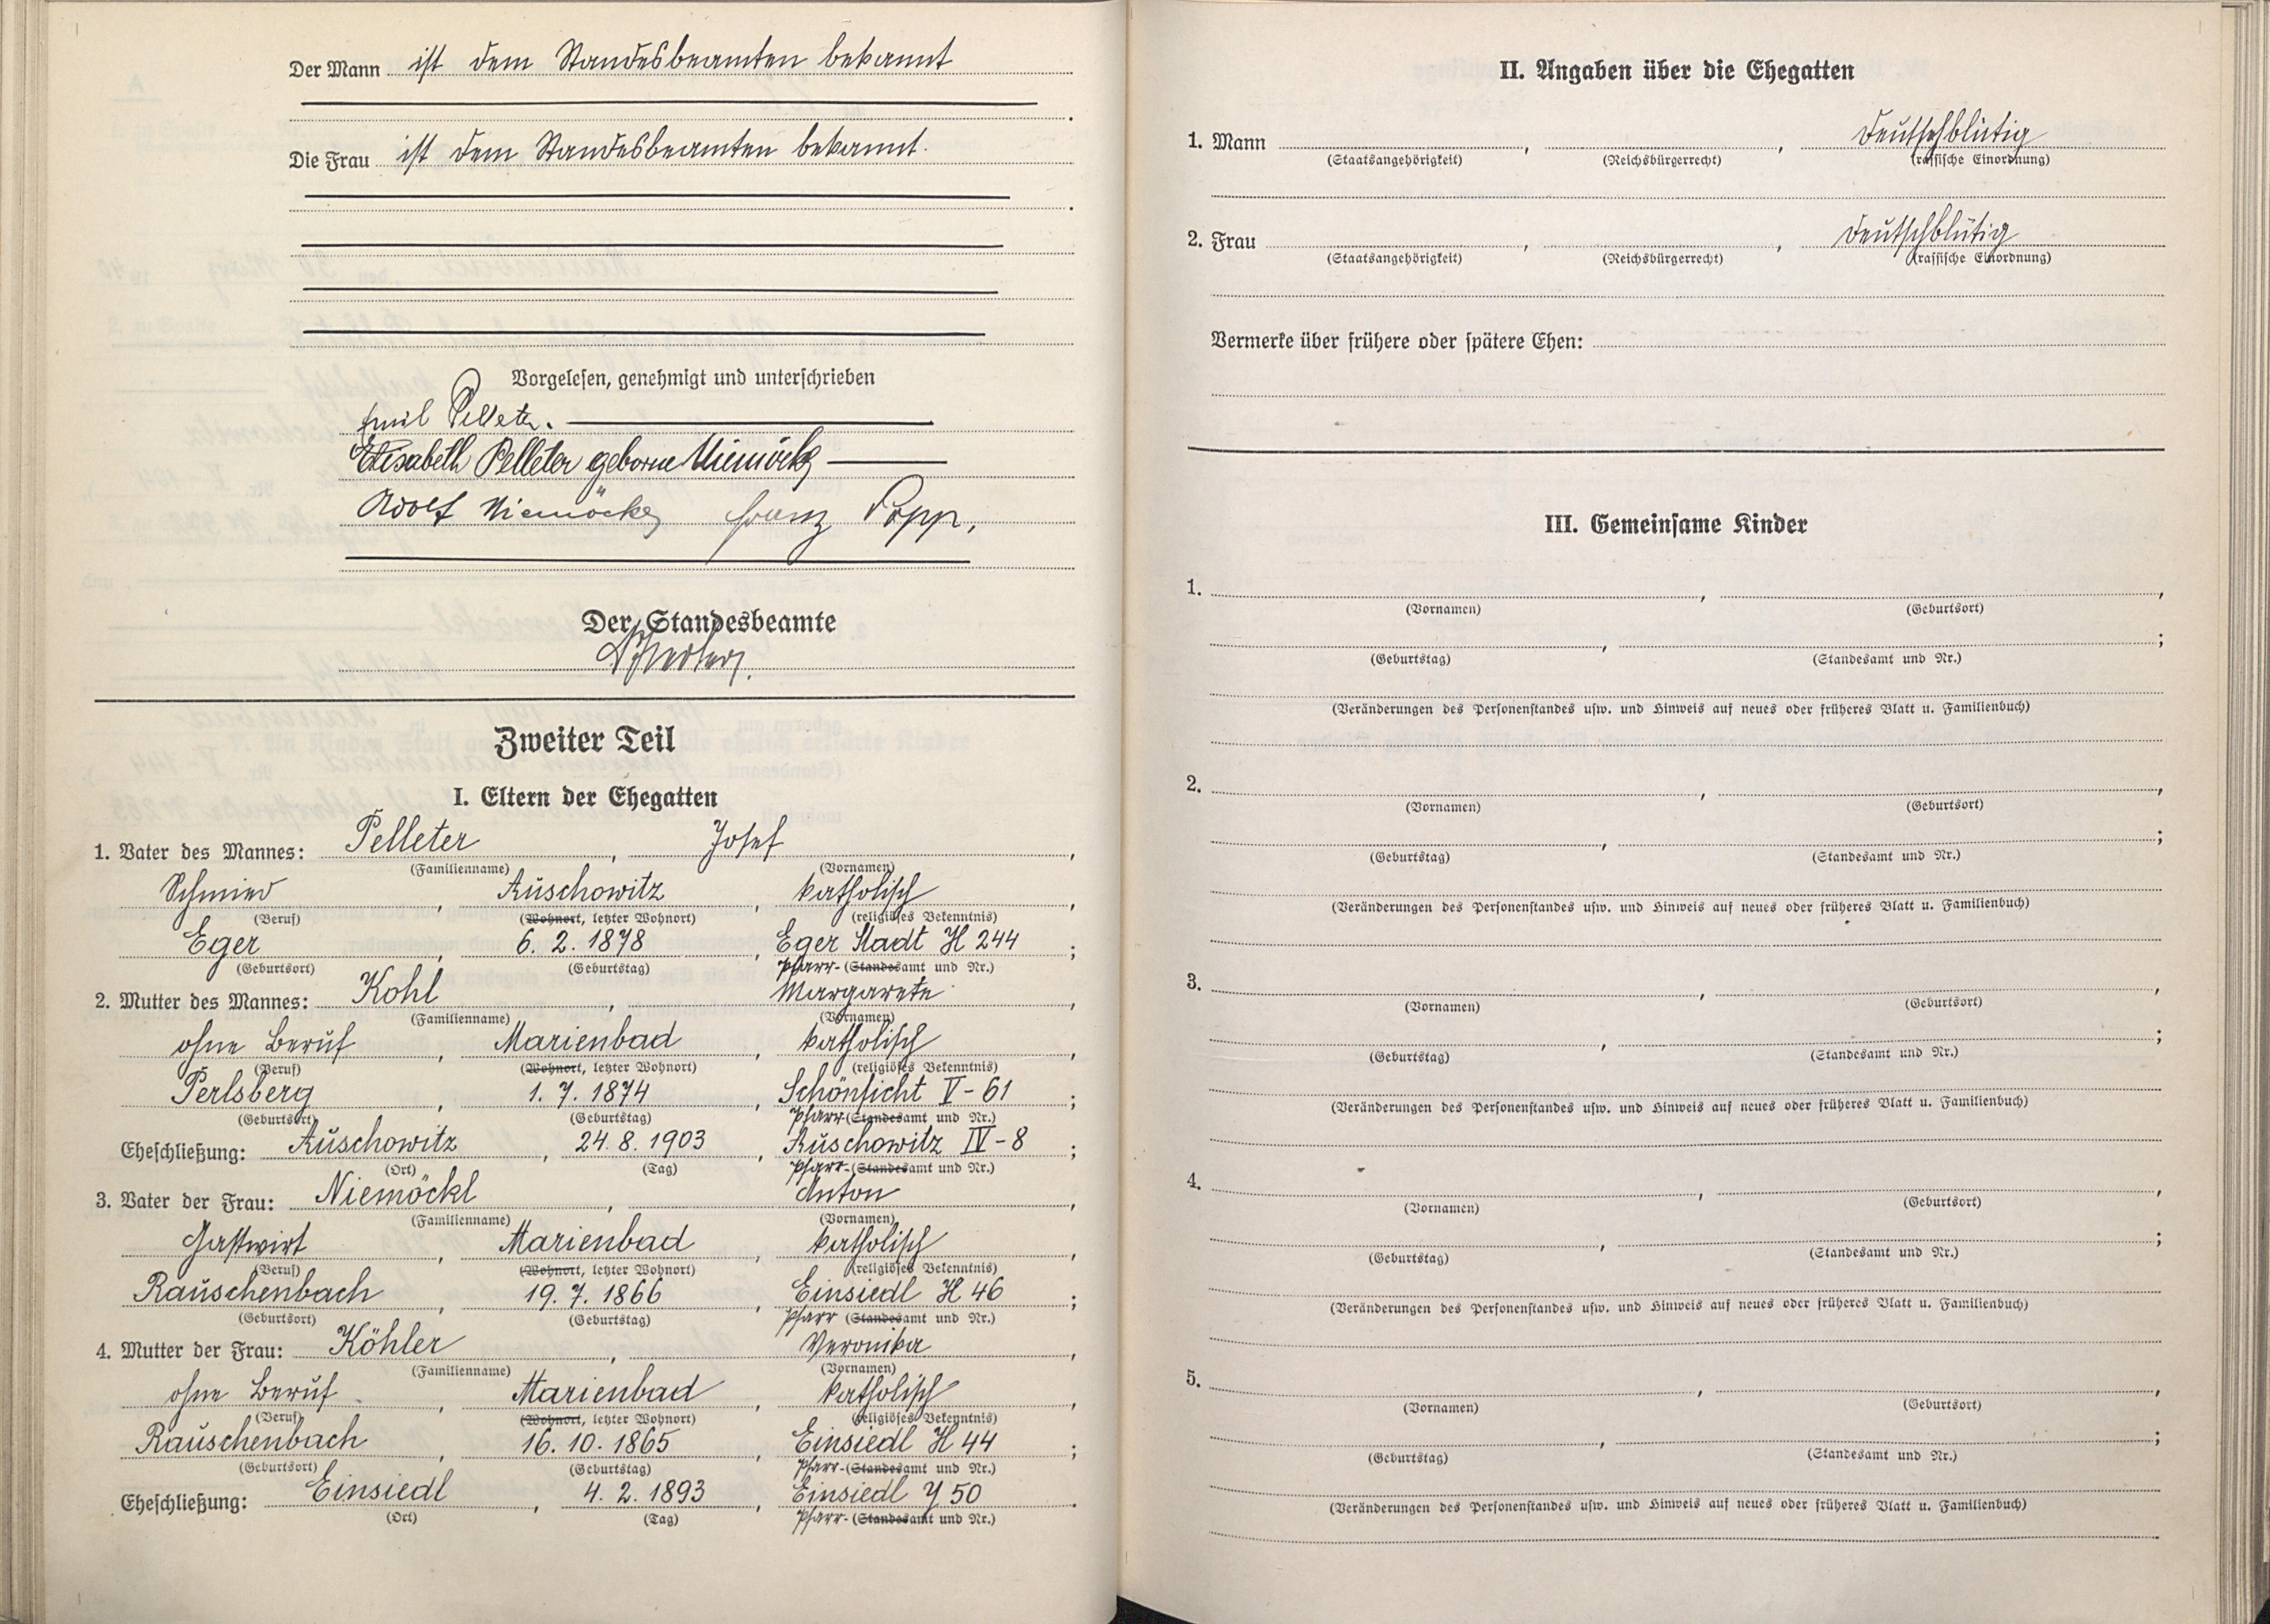 Der Mann ist dem Standesbeamten bekannt
Die Frau ist dem Standesbeamten bekannt.
Vorgelesen, genehmigt und unterschrieben
Emil Pelleter.
Elisabeth Pelleter geborne Niemöckl
Adolf Niemöckl Franz Popp,
Der Standesbeamte
Zweiter Teil
I. Eltern der Ehegatten
1. Vater des Mannes: Pelleter, Josef,
(Familienname) (Vornamen)
Schmied, Auschowitz, katholisch,
(Beruf) (Wohnort, letzter Wohnort) (religiöses Bekenntnis)
Eger, 6. 2. 1878, Eger Stadt H 244;
(Geburtsort) (Geburtstag) Pfarr-(Standesamt und Nr.)
2. Mutter des Mannes: Kohl, Margarete,
(Familienname) (Vornamen)
ohne Beruf, Marienbad, katholisch,
(Beruf) (Wohnort, letzter Wohnort) (religiöses Bekenntnis)
Perlsberg, 1. 7. 1874, Schönficht V-61;
(Geburtsort) (Geburtstag) Pfarr-(Standesamt und Nr.)
Eheschließung: Auschowitz, 24. 8. 1903, Auschowitz IV-8;
(Ort) (Tag) Pfarr-(Standesamt und Nr.)
3. Vater der Frau: Niemöckl, Anton,
(Familienname) (Vornamen)
Gastwirt, Marienbad, katholisch,
(Beruf) (Wohnort, letzter Wohnort) (religiöses Bekenntnis)
Rauschenbach, 19. 7. 1866, Einsiedl H 46;
(Geburtsort) (Geburtstag) Pfarr (Standesamt und Nr.)
4. Mutter der Frau: Köhler, Veronika,
(Familienname) (Vornamen)
ohne Beruf, Marienbad, katholisch,
(Beruf) (Wohnort, letzter Wohnort) (religiöses Bekenntnis)
Rauschenbach, 16. 10. 1865, Einsiedl H 44;
(Geburtsort) (Geburtstag) Pfarr-(Standesamt und Nr.)
Eheschließung: Einsiedl, 4. 2. 1893, Einsiedl 50.
(Ort) (Tag) Pfarr-(Standesamt und Nr.)
II. Angaben über die Ehegatten
1. Mann , , deutschblütig
(Staatsangehörigkeit) (Reichsbürgerrecht) (rassische Einordnung)
2. Frau , , deutschblütig
(Staatsangehörigkeit) (Reichsbürgerrecht) (rassische Einordnung)
Vermerke über frühere oder spätere Ehen:
III. Gemeinsame Kinder
1. , ,
(Vornamen) (Geburtsort)
, ;
(Geburtstag) (Standesamt und Nr.)
(Veränderungen des Personenstandes usw. und Hinweis auf neues oder früheres Blatt u. Familienbuch)
2. , ,
(Vornamen) (Geburtsort)
, ;
(Geburtstag) (Standesamt und Nr.)
(Veränderungen des Personenstandes usw. und Hinweis auf neues oder früheres Blatt u. Familienbuch)
3. , ,
(Vornamen) (Geburtsort)
, ;
(Geburtstag) (Standesamt und Nr.)
(Veränderungen des Personenstandes usw. und Hinweis auf neues oder früheres Blatt u. Familienbuch)
4. , ,
(Vornamen) (Geburtsort)
, ;
(Geburtstag) (Standesamt und Nr.)
(Veränderungen des Personenstandes usw. und Hinweis auf neues oder früheres Blatt u. Familienbuch)
5. , ,
(Vornamen) (Geburtsort)
, ;
(Geburtstag) (Standesamt und Nr.)
(Veränderungen des Personenstandes usw. und Hinweis auf neues oder früheres Blatt u. Familienbuch)